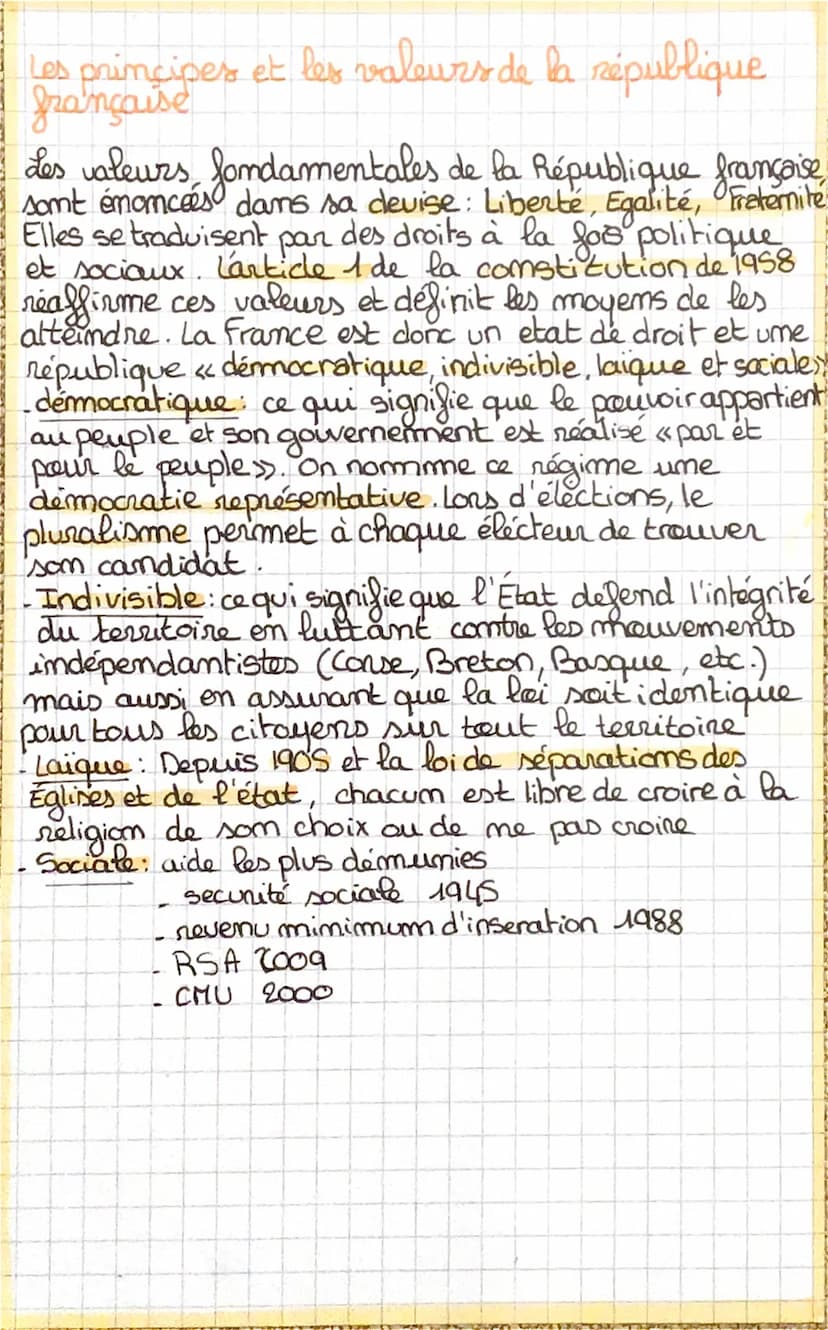 Les principes et les valeurs de la république
française
Les valeurs fondamentales de la République française,
sont énoncées dans sa devise : Liberté, Egalité, Fraternité
Elles se traduisent par des droits à la fois politique
et sociaux. L'article 1 de la constitution de 1958
réaffirme ces valeurs et définit les moyens de les
atteindre. La France est donc un etat de droit et une
république « démocratique, indivisible, laïque et sociale »
- démocratique : ce qui signifie que le pouvoir appartient
au peuple et son gouvernement est réalisé « par et
pour le peuple ». On nomme ce régime une
démocratie représentative. Lors d'éléctions, le
pluralisme permet à chaque élécteur de trouver
son candidat.
- Indivisible : ce qui signifie que l'État défend l'intégrité
du territoire en luttant contre les mouvements
indépendantistes (Corse, Breton, Basque, etc.)
mais aussi en assurant que la loi soit identique
pour tous les citoyens sur tout le territoire
- Laïque : Depuis 1905 et la loi de séparations des
Églises et de l'état, chacun est libre de croire à la
religion de son choix ou de ne pas croire
- Sociale : aide les plus démunies
- securité sociale 1945
- revenu minimum d'inseration 1988
- RSA 2009
- CMU 2000